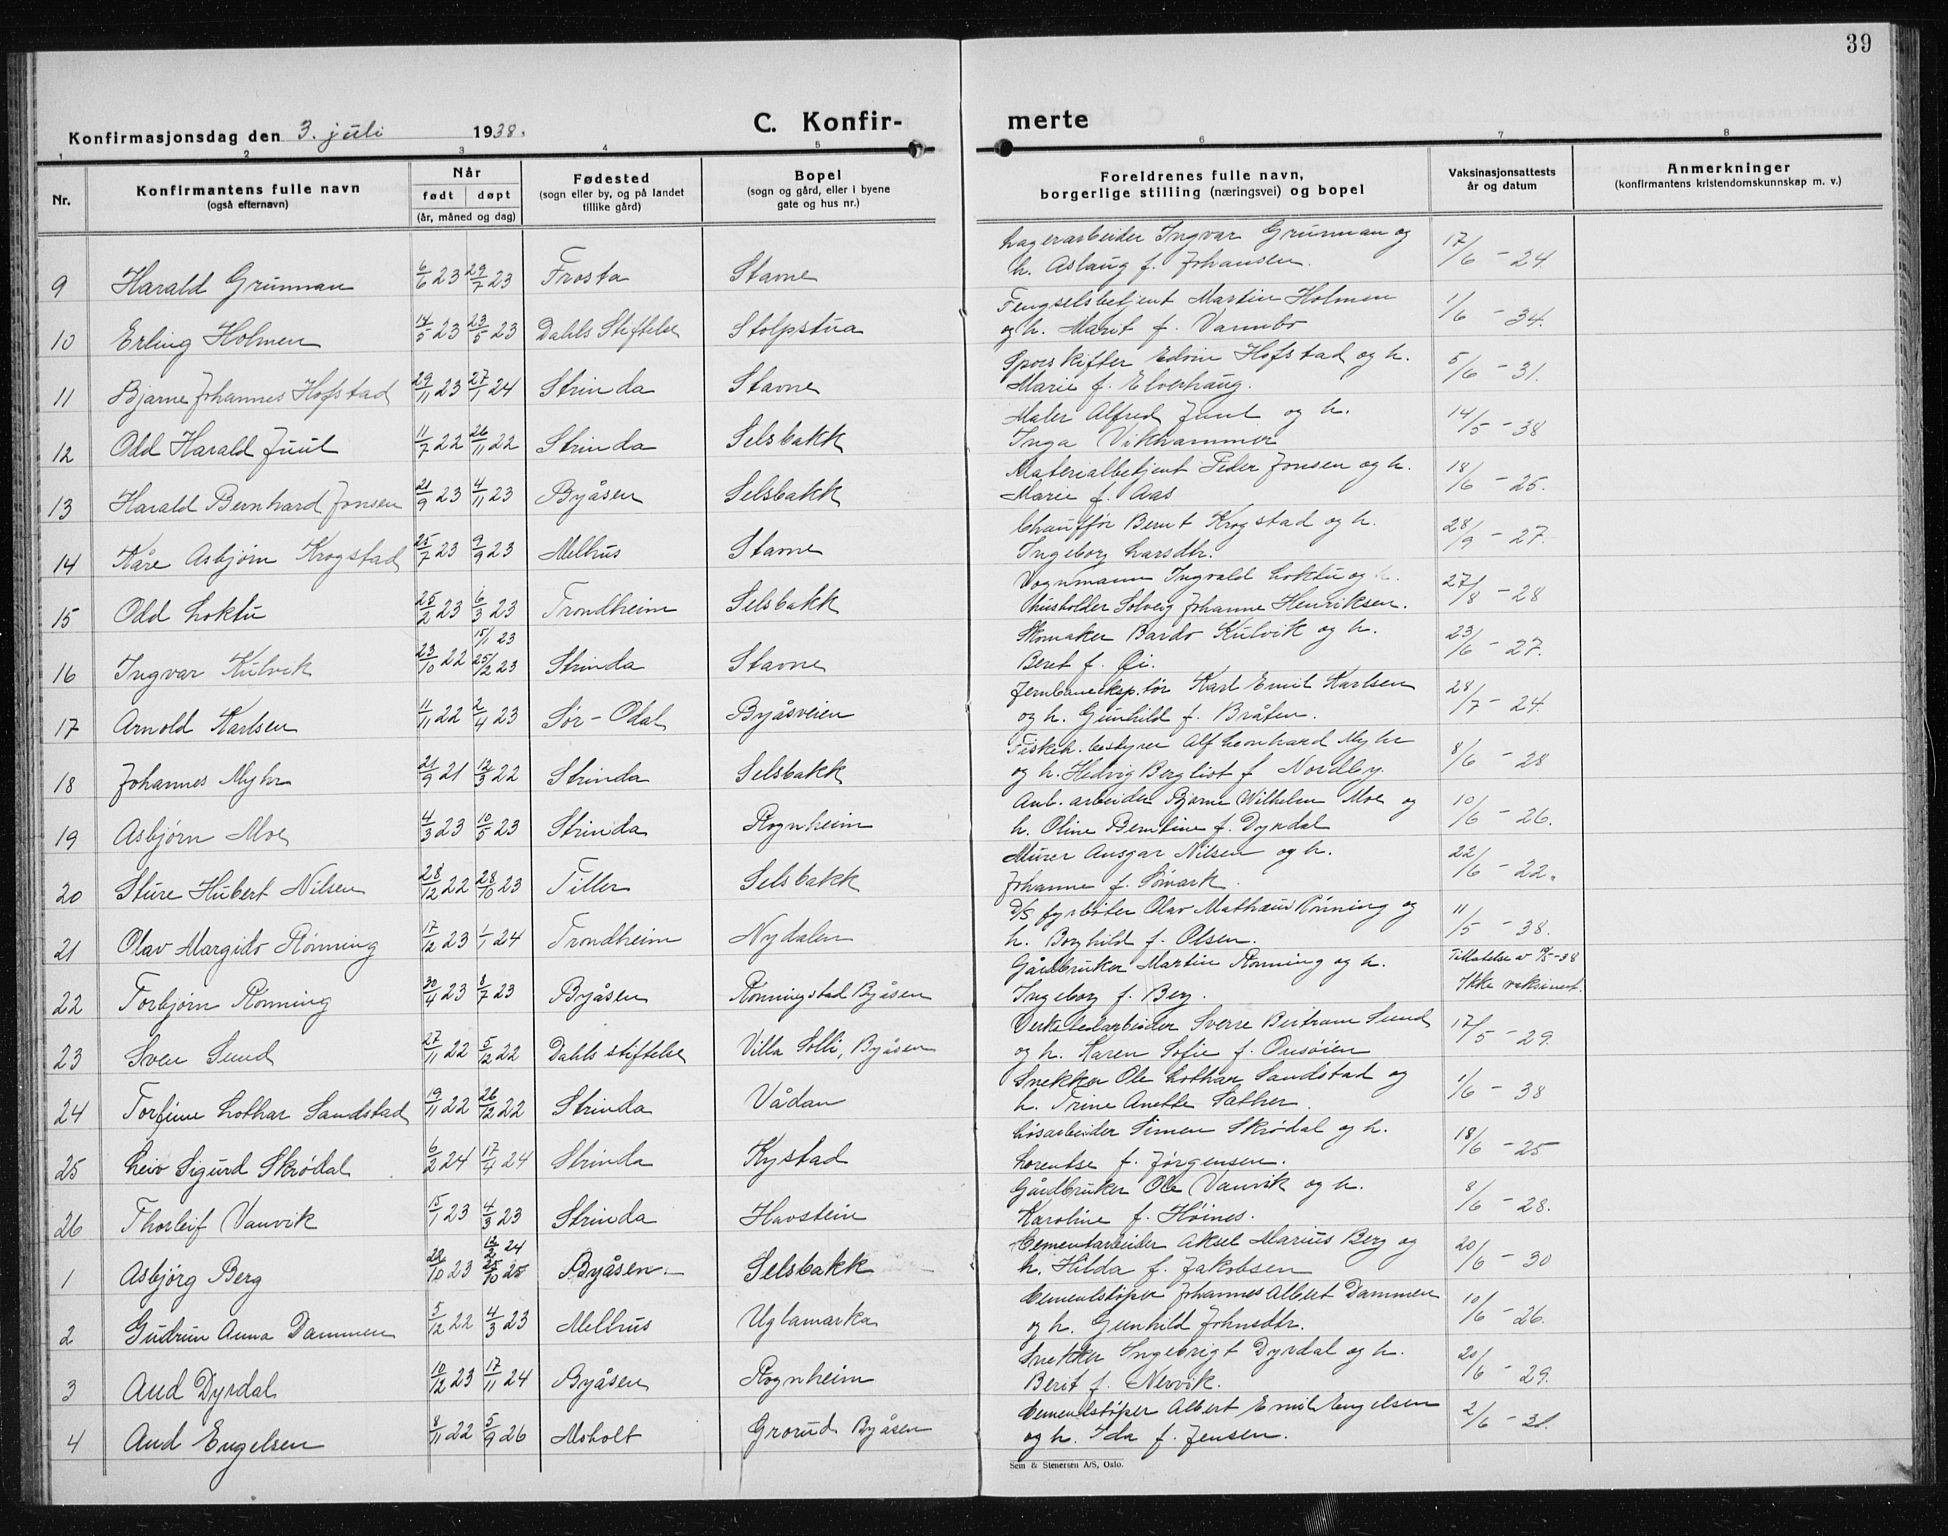 39
Konfirmasjonsdag den 3. juli 1938.
C. Konfir-
merte
1 2 3 4 5 6 7 8
Nr.
Konfirmantens fulle navn
(også efternavn)
Når
født døpt
(år, måned og dag)
Fødested
(sogn eller by, og på landet
tillike gård)
Bopel
(sogn og gård, eller i byene
gate og hus nr.)
Foreldrenes fulle navn,
borgerlige stilling (næringsvei) og bopel
Vaksinasjonsattests
år og datum
Anmerkninger
(konfirmantens kristendomskunnskap m. v.)
9 Harald Grunnan 6/6 23 29/7 23 Frosta Stavne Lagerarbeider Ingvar Grunnan og 17/6 - 24.
h. Aslaug f. Johansen.
10 Erling Holmen 14/5 23 23/5 23 Dahls Stiftelse Stolpstua Fengselsbetjent Martin Holmen 1/6 - 34.
og h. Marit f. Vannebo
11 Bjarne Johannes Hofstad 29/11 23 27/1 24 Strinda Stavne Sporskifter Edvin Hofstad og h. 5/6 - 31.
Marie f. Elverhaug.
12 Odd Harald Juul 11/7 22 26/11 22 Strinda Selsbakk Maler Alfred Juul og h. 14/5 - 38
Inga Vikhammer
13 Harald Bernhard Jonsen 21/9 23 4/11 23 Byåsen Selsbakk Materialbetjent Peder Jonsen og h. 18/6 - 25.
Marie f. Aas
14 Kåre Asbjørn Krogstad 25/7 23 9/9 23 Melhus Stavne Chauffør Bernt Krogstad og h. 28/9 - 27.
Ingeborg Larsdtr.
15 Odd Loktu 25/2 23 6/3 23 Trondheim Selsbakk Vognmann Ingvald Loktu og h. 27/8 - 28
husholder Solveig Johanne Henriksen.
15/1 23
16 Ingvar Kulvik 23/10 22 25/2 23 Strinda Stavne Skomaker Bardo Kulvik og h. 23/6 - 27.
Beret f. Øi.
17 Arnold Karlsen 11/11 22 2/4 23 Sør-Odal Byåsveien Jernbaneeksp.tør Karl Emil Karlsen 28/7 - 24.
og h. Gunhild f. Bråten.
18 Johannes Myhr 21/9 21 12/3 22 Strinda Selsbakk Fiskeh. bestyrer Alf Leonhard Myhr 8/6 - 28
og h. Hedvig Bergliot f. Nordby.
19 Asbjørn Moe 4/3 23 10/5 23 Strinda Rognheim Anl. arbeider Bjarne Wilhelm Moe og 10/6 - 26.
h. Oline Berntine f. Dyrdal
20 Sture Hubert Nilsen 28/12 22 28/10 23 Tiller Selsbakk Murer Ansgar Nilsen og h. 22/6 - 22.
Johanne f. Sømark.
21 Olav Margido Rønning 17/12 23 1/1 24 Trondheim Nydalen D/S fyrbøter Olav Mathæus Rønning og 11/5 - 38.
h. Borghild f. Olsen.
22 Torbjørn Rønning 30/4 23 8/7 23 Byåsen Rønningstad Byåsen Gårdbruker Martin Rønning og h. Tillatelse av 19/5-38
Ingeborg f. Berg. Ikke vaksinert.
23 Sven Sund 27/11 22 5/12 22 Dahls stiftelse Villa Solli, Byåsen Verkstedarbeider Sverre Bertram Sund 17/5 - 29.
og h. Karen Sofie f. Onsøien
24 Torfinn Lothar Sandstad 19/11 22 26/12 22 Strinda Vådan Snekker Ole Lothar Sandstad og 1/6 - 38
h. Trine Anette Sæther.
25 Leiv Sigurd Skrødal 6/2 24 17/4 24 Strinda Kystad Løsarbeider Simen Skrødal og h. 18/6 - 25
Lorentse f. Jørgensen.
26 Thorleif Vanvik 15/1 23 4/3 23 Strinda Havstein Gårdbruker Ole Vanvik og h. 8/6 - 28.
Karoline f. Høines.
12/2 24
1 Asbjørg Berg 22/10 23 25/10 25 Byåsen. Selsbakk Cementarbeider Aksel Marius Berg og 20/6 - 30
h. Hilda f. Jakobsen
2 Gudrun Anna Dammen 5/12 22 4/3 23 Melhus Uglamarka Cementstøper Johannes Albert Dammen 10/6 - 26.
og h. Gunhild Johnsdtr.
3 Aud Dyrdal 10/12 23 17/11 24 Byåsen Rognheim Snekker Ingebrigt Dyrdal og h. 20/6 - 29.
Berit f. Nervik.
4 Aud Engelsen 8/11 22 5/9 26 Asholt Grorud Byåsen Cementstøper Albert Emil Engelsen 2/6 - 31.
og h. Ida f. Jensen.
Sem & Stenersen A/S, Oslo.